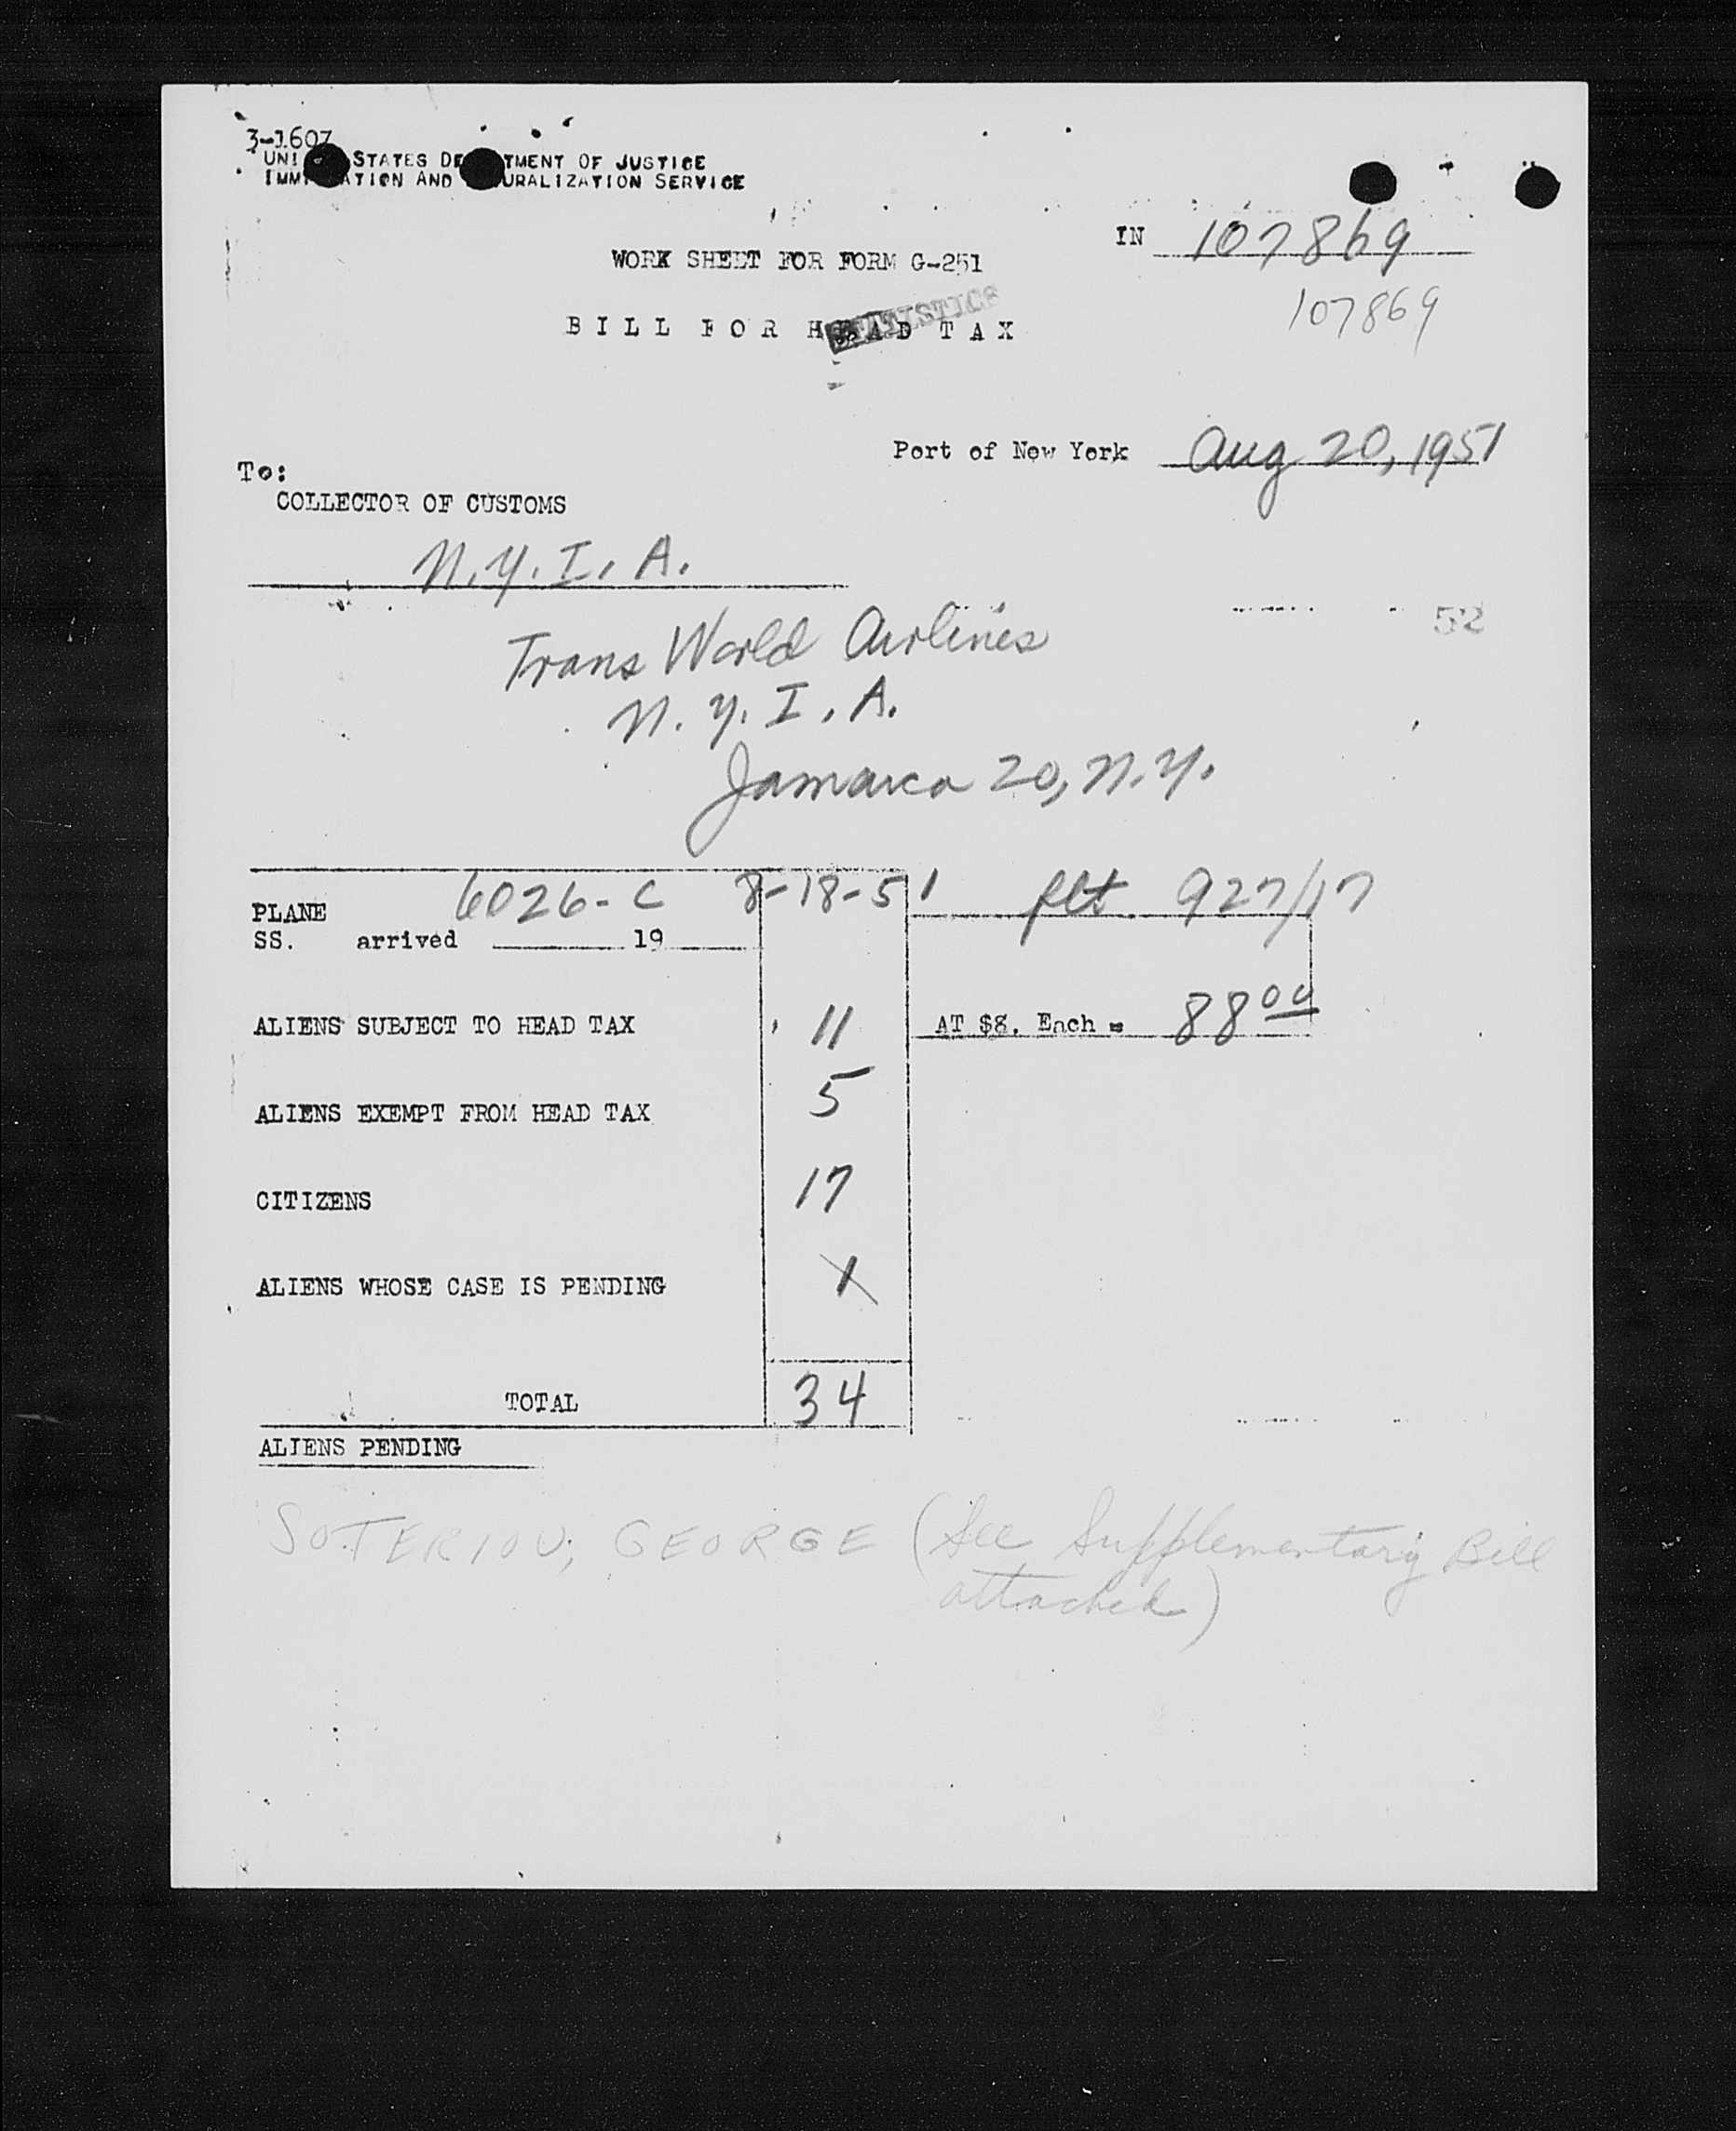 3-1607
UNI STATES DE TMENT OF JUSTICE
IMMI ATION AND URALIZATION SERVICE
IN 107869
WORK SHEET FOR FORM G-251
107869
BILL FOR HEAD TAX
STATISTICS
Port of New York Aug 20, 1951
To:
COLLECTOR OF CUSTOMS
N.Y.I.A.
52
Trans World Airlines
N.Y.I.A.
Jamaica 20, N.Y.
6026-C 8-18-51 flt 927/17
PLANE
SS. arrived 19
ALIENS SUBJECT TO HEAD TAX 11 AT $8. Each = 88 00
ALIENS EXEMPT FROM HEAD TAX 5
CITIZENS 17
ALIENS WHOSE CASE IS PENDING 1
TOTAL 34
ALIENS PENDING
SOTERIOU, GEORGE (See Supplementary Bill
attached)